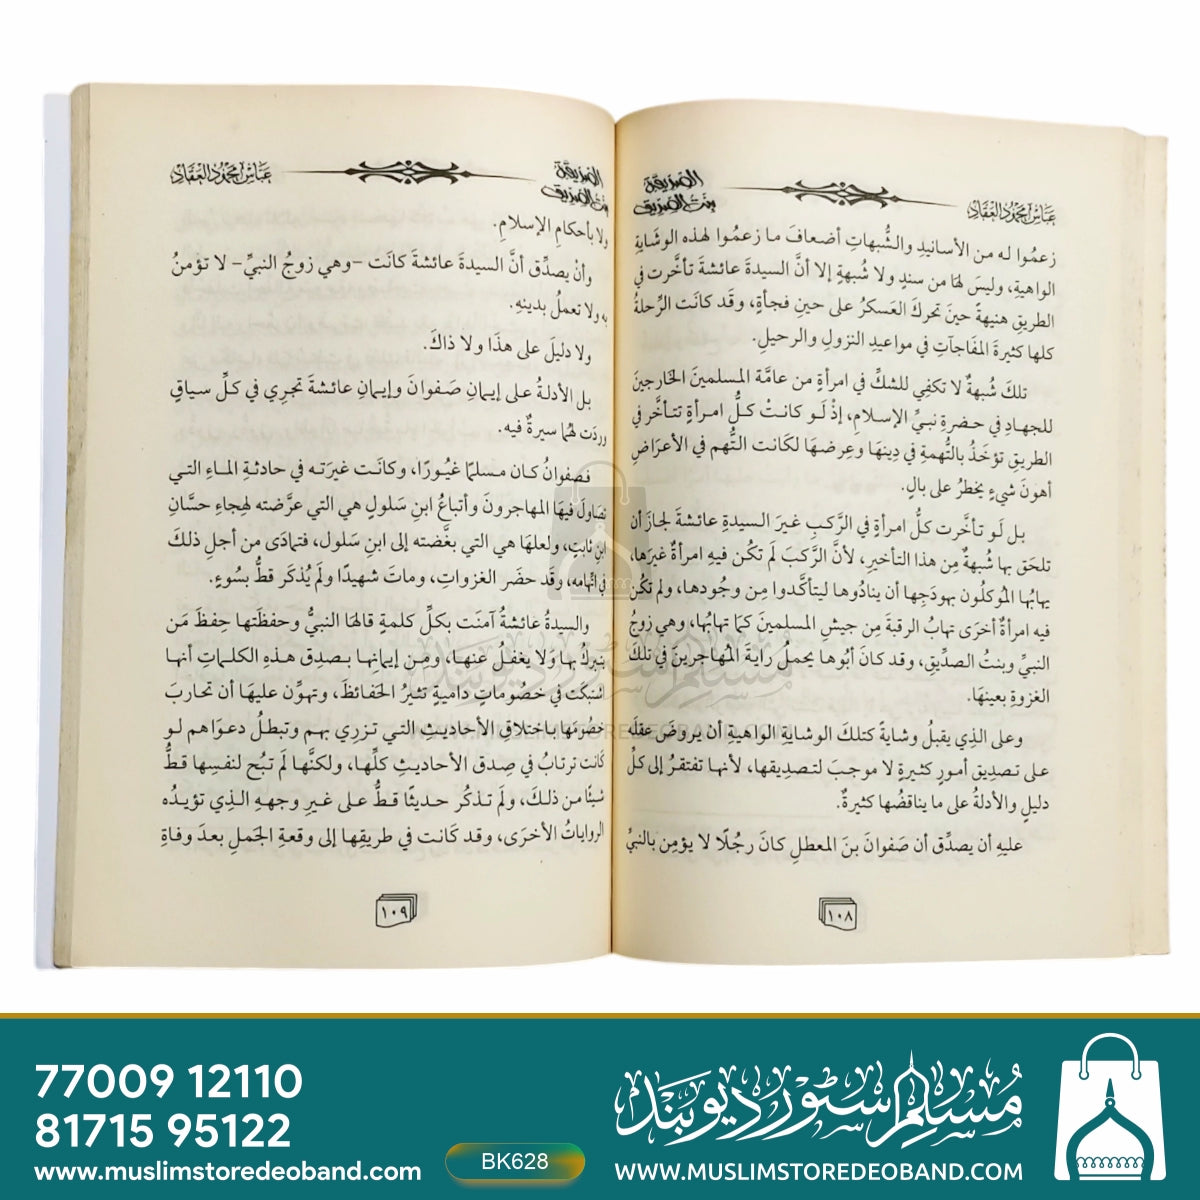 الصديقة
بنت الصديق
عباس محمود العقاد
زعمُوا له من الأسانيدِ والشُّبهاتِ أضعافَ ما زعمُوا لهذه الوشايةِ
الواهيةِ، وليسَ لهَا من سندٍ ولا شُبهةٍ إلا أنَّ السيدةَ عائشةَ تأخَّرت في
الطريقِ هنيهةً حينَ تحركَ العَسكرُ على حينِ فجأةٍ، وقَد كانَت الرِّحلةُ
كلها كثيرةَ المفَاجآتِ في مواعيدِ النزولِ والرحيلِ.
تلكَ شُبهةٌ لا تكفِي للشكِّ في امرأةٍ من عامَّة المسلمينَ الخَارجينَ
للجهادِ في حضرةِ نبيِّ الإسلامِ، إذْ لَو كانتْ كلُّ امرأةٍ تتأخَّر في
الطريقِ تؤخَذُ بالتُّهمةِ في دِينهَا وعِرضهَا لكَانت التُّهم في الأعرَاضِ
أهونَ شيءٍ يخطرُ على بالِ.
بل لَو تأخَّرت كلُّ امرأةٍ في الرَّكبِ غيرَ السيدةِ عائشةَ لجازَ أن
تلحَق بها شُبهةٌ مِن هذا التأخيرِ، لأنَّ الرَّكبَ لَم تكُن فيهِ امرأةٌ غيرَها،
يهابُها المُوكلُون بهودَجِها أن ينادُوها ليتأكَّدوا مِن وجُودهَا، ولم تكُن
فيه امرأةٌ أخرَى تهابُ الرقبةَ مِن جيشِ المسلمينَ كمَا تهابُها، وهي زوجُ
النبيِّ وبنتُ الصدِّيقِ، وقد كانَ أبُوها يحملُ رايةَ المُهاجرينَ في تلكَ
الغزوةِ بعينهَا.
وعلى الذِي يقبلُ وشايةً كتلكَ الوشايةِ الواهيةِ أن يروضَ عقلَه
على تصدِيق أمورٍ كثيرةٍ لا موجبَ لتصدِيقها، لأنها تفتقرُ إلى كلِّ
دليلٍ والأدلةُ على ما يناقضُها كثيرةٌ.
عليهِ أن يصدِّق أن صَفوانَ بنَ المعطلِ كانَ رجُلًا لا يؤمِن بالنبيِّ
١٠٨
الصديقة
بنت الصديق
عباس محمود العقاد
ولا بأحكامِ الإسلامِ.
وأنْ يصدِّق أنَّ السيدةَ عائشةَ كانَت –وهي زوجُ النبيِّ– لا تؤمنُ
به ولا تعملُ بدينهِ.
ولا دليلَ على هذَا ولا ذاكَ.
بل الأدلةُ على إيمانِ صَفوانَ وإيمانِ عائشةَ تجرِي في كلِّ سياقٍ
وردَت لهُما سيرةٌ فيه.
فصفوانُ كان مسلمًا غيُورًا، وكانَت غيرَته في حادثةِ الماءِ التي
تصَاولَ فيهَا المهاجرونَ وأتباعُ ابنِ سَلولٍ هي التي عرَّضته لهِجاءِ حسَّانِ
ابنِ ثابتٍ، ولعلهَا هي التي بغَّضته إلى ابنِ سَلول، فتمادَى من أجلِ ذلكَ
في اتِّهامه، وقَد حضَر الغزواتِ، وماتَ شهيدًا ولَم يُذكَر قطُّ بسُوءٍ.
والسيدةُ عائشةُ آمنَت بكلِّ كلمةٍ قالهَا النبيُّ وحفظَتها حِفظَ مَن
يتبركُ بها وَلا يغفلُ عنهَا، ومِن إيمانِها بصدِق هذهِ الكلمَاتِ أنها
اشتبكَت في خصُوماتٍ داميةٍ تثيرُ الحَفائظَ، وتهوِّن عليهَا أن تحاربَ
خصُومَها باختلاقِ الأحاديثِ التي تزرِي بهم وتبطلُ دعوَاهم لو
كانَت ترتابُ في صِدق الأحاديثِ كلِّها، ولكنَّها لَم تبُح لنفسِها قطُّ
شيئًا من ذلكَ، ولَم تذكُر حديثًا قطُّ على غيرِ وجههِ الذِي تؤيدُه
الرواياتُ الأخرَى، وقد كَانت في طريقِها إلى وقعةِ الجَملِ بعدَ وفاةِ
١٠٩
مسلم سٹور دیوبند
WWW.MUSLIMSTOREDEOBAND.COM
77009 12110
81715 95122
www.muslimstoredeoband.com
BK628
مسلم سٹور دیوبند
WWW.MUSLIMSTOREDEOBAND.COM